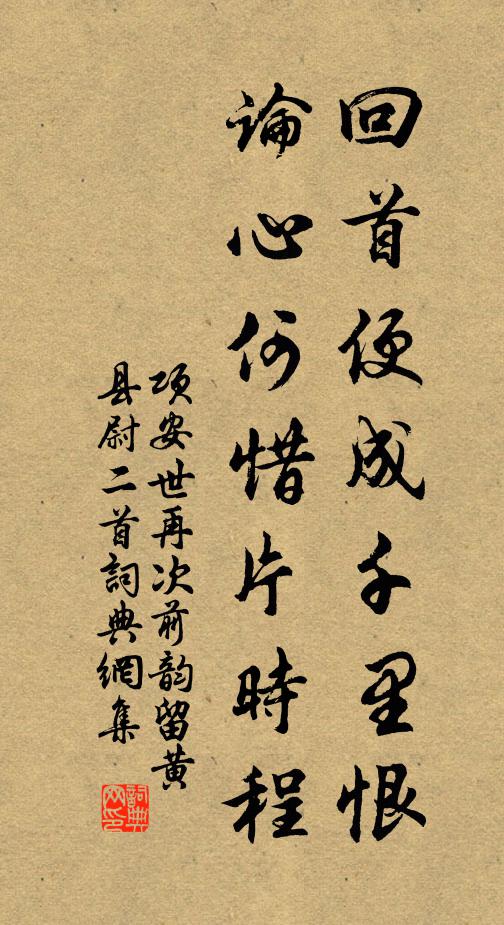 回首便成千里恨
論心何惜片時程
项安世再次前韵留黄
县尉二首詞典網集
詞典
网印